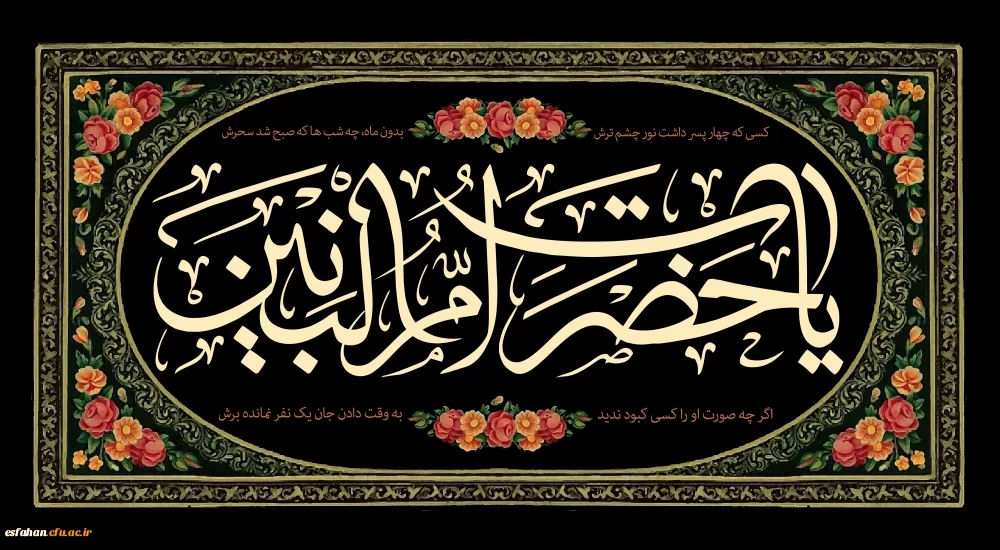 کسی که چهار پسر داشت نور چشم ترش بدون ماه، چه شب ها که صبح شد سحرش
یا حضرت امُّ البنین
اگر چه صورت او را کسی کبود ندید به وقت دادن جان یک نفر نمانده برش
esfahan.cfu.ac.ir